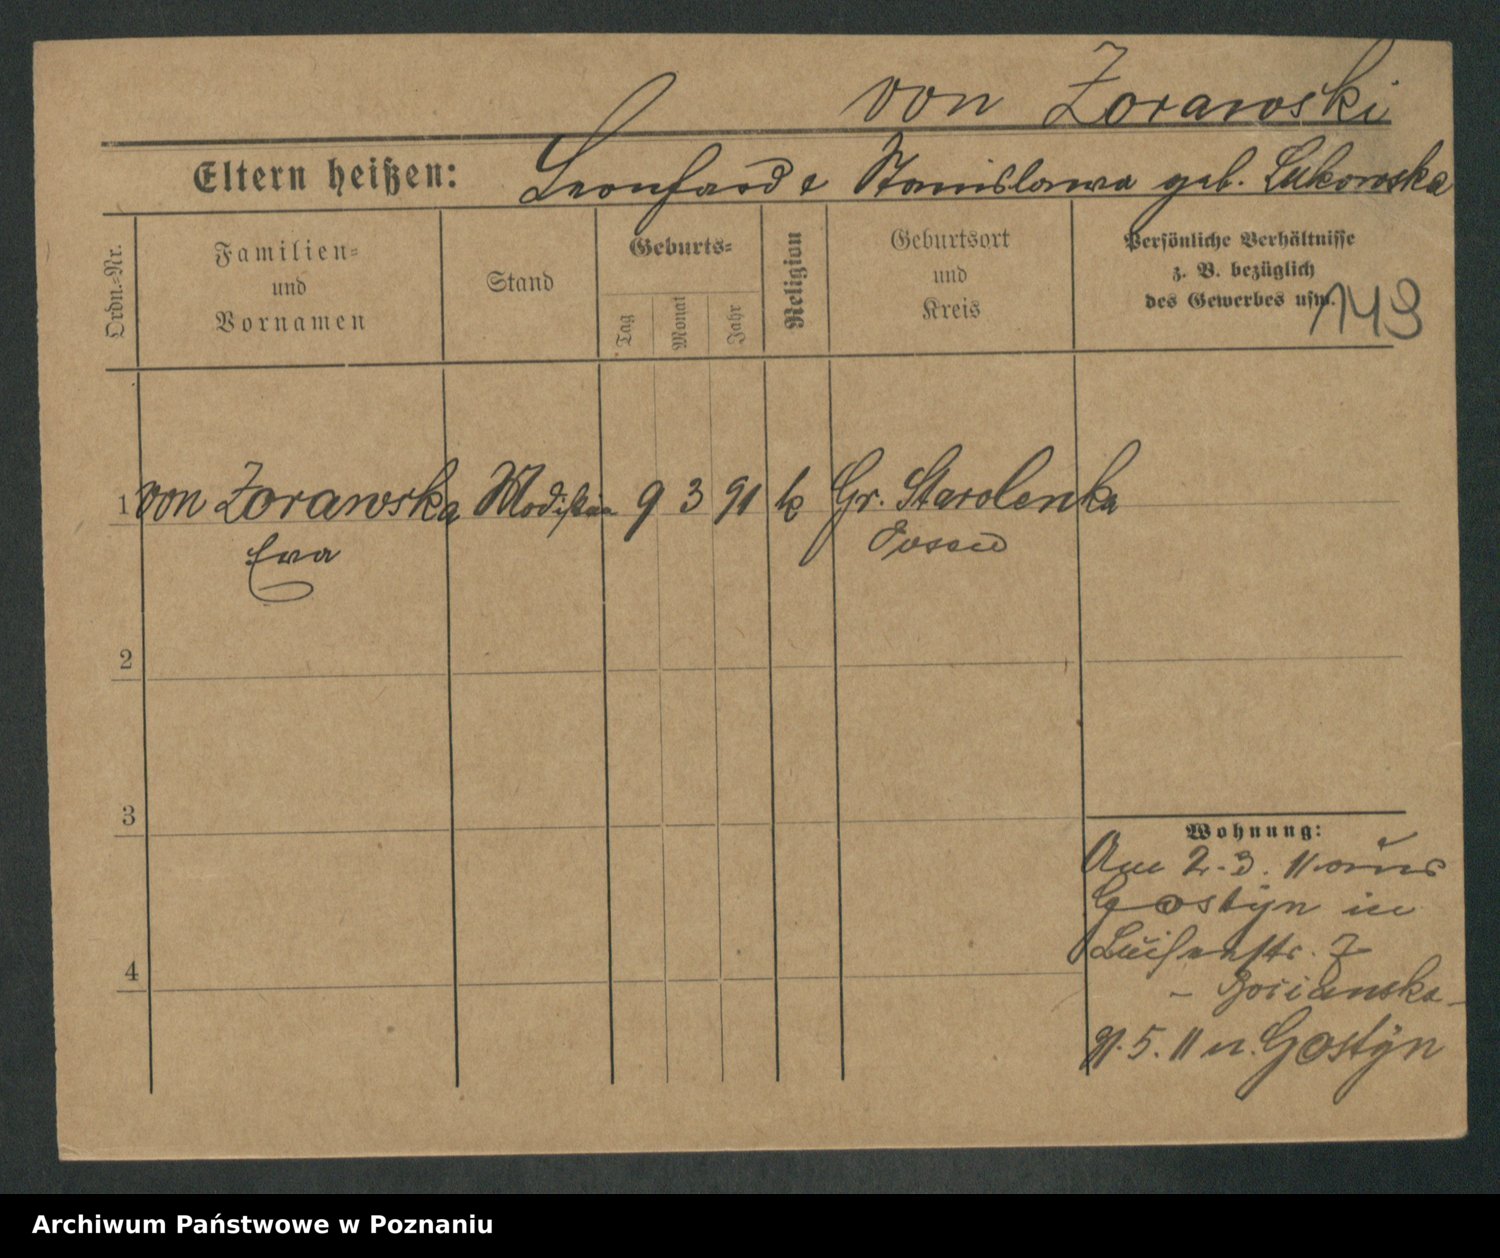 von Zorawski
Eltern heißen: Leonhard e Stanislawa geb. Lukowska
Ordn.-Nr.
Familien-
und
Vornamen
Stand
Geburts-
Tag
Monat
Jahr
Religion
Geburtsort
und
Kreis
Persönliche Verhältnisse
z. B. bezüglich
des Gewerbes usw.
149
1 von Zorawska Modistin 9 3 91 k Gr. Starolenka
Eva
2
3
4
Wohnung:
Am 2.3.11 aus
Gostyn in
Luisenstr. 7
5.11 n. Gostyn
Archiwum Państwowe w Poznaniu